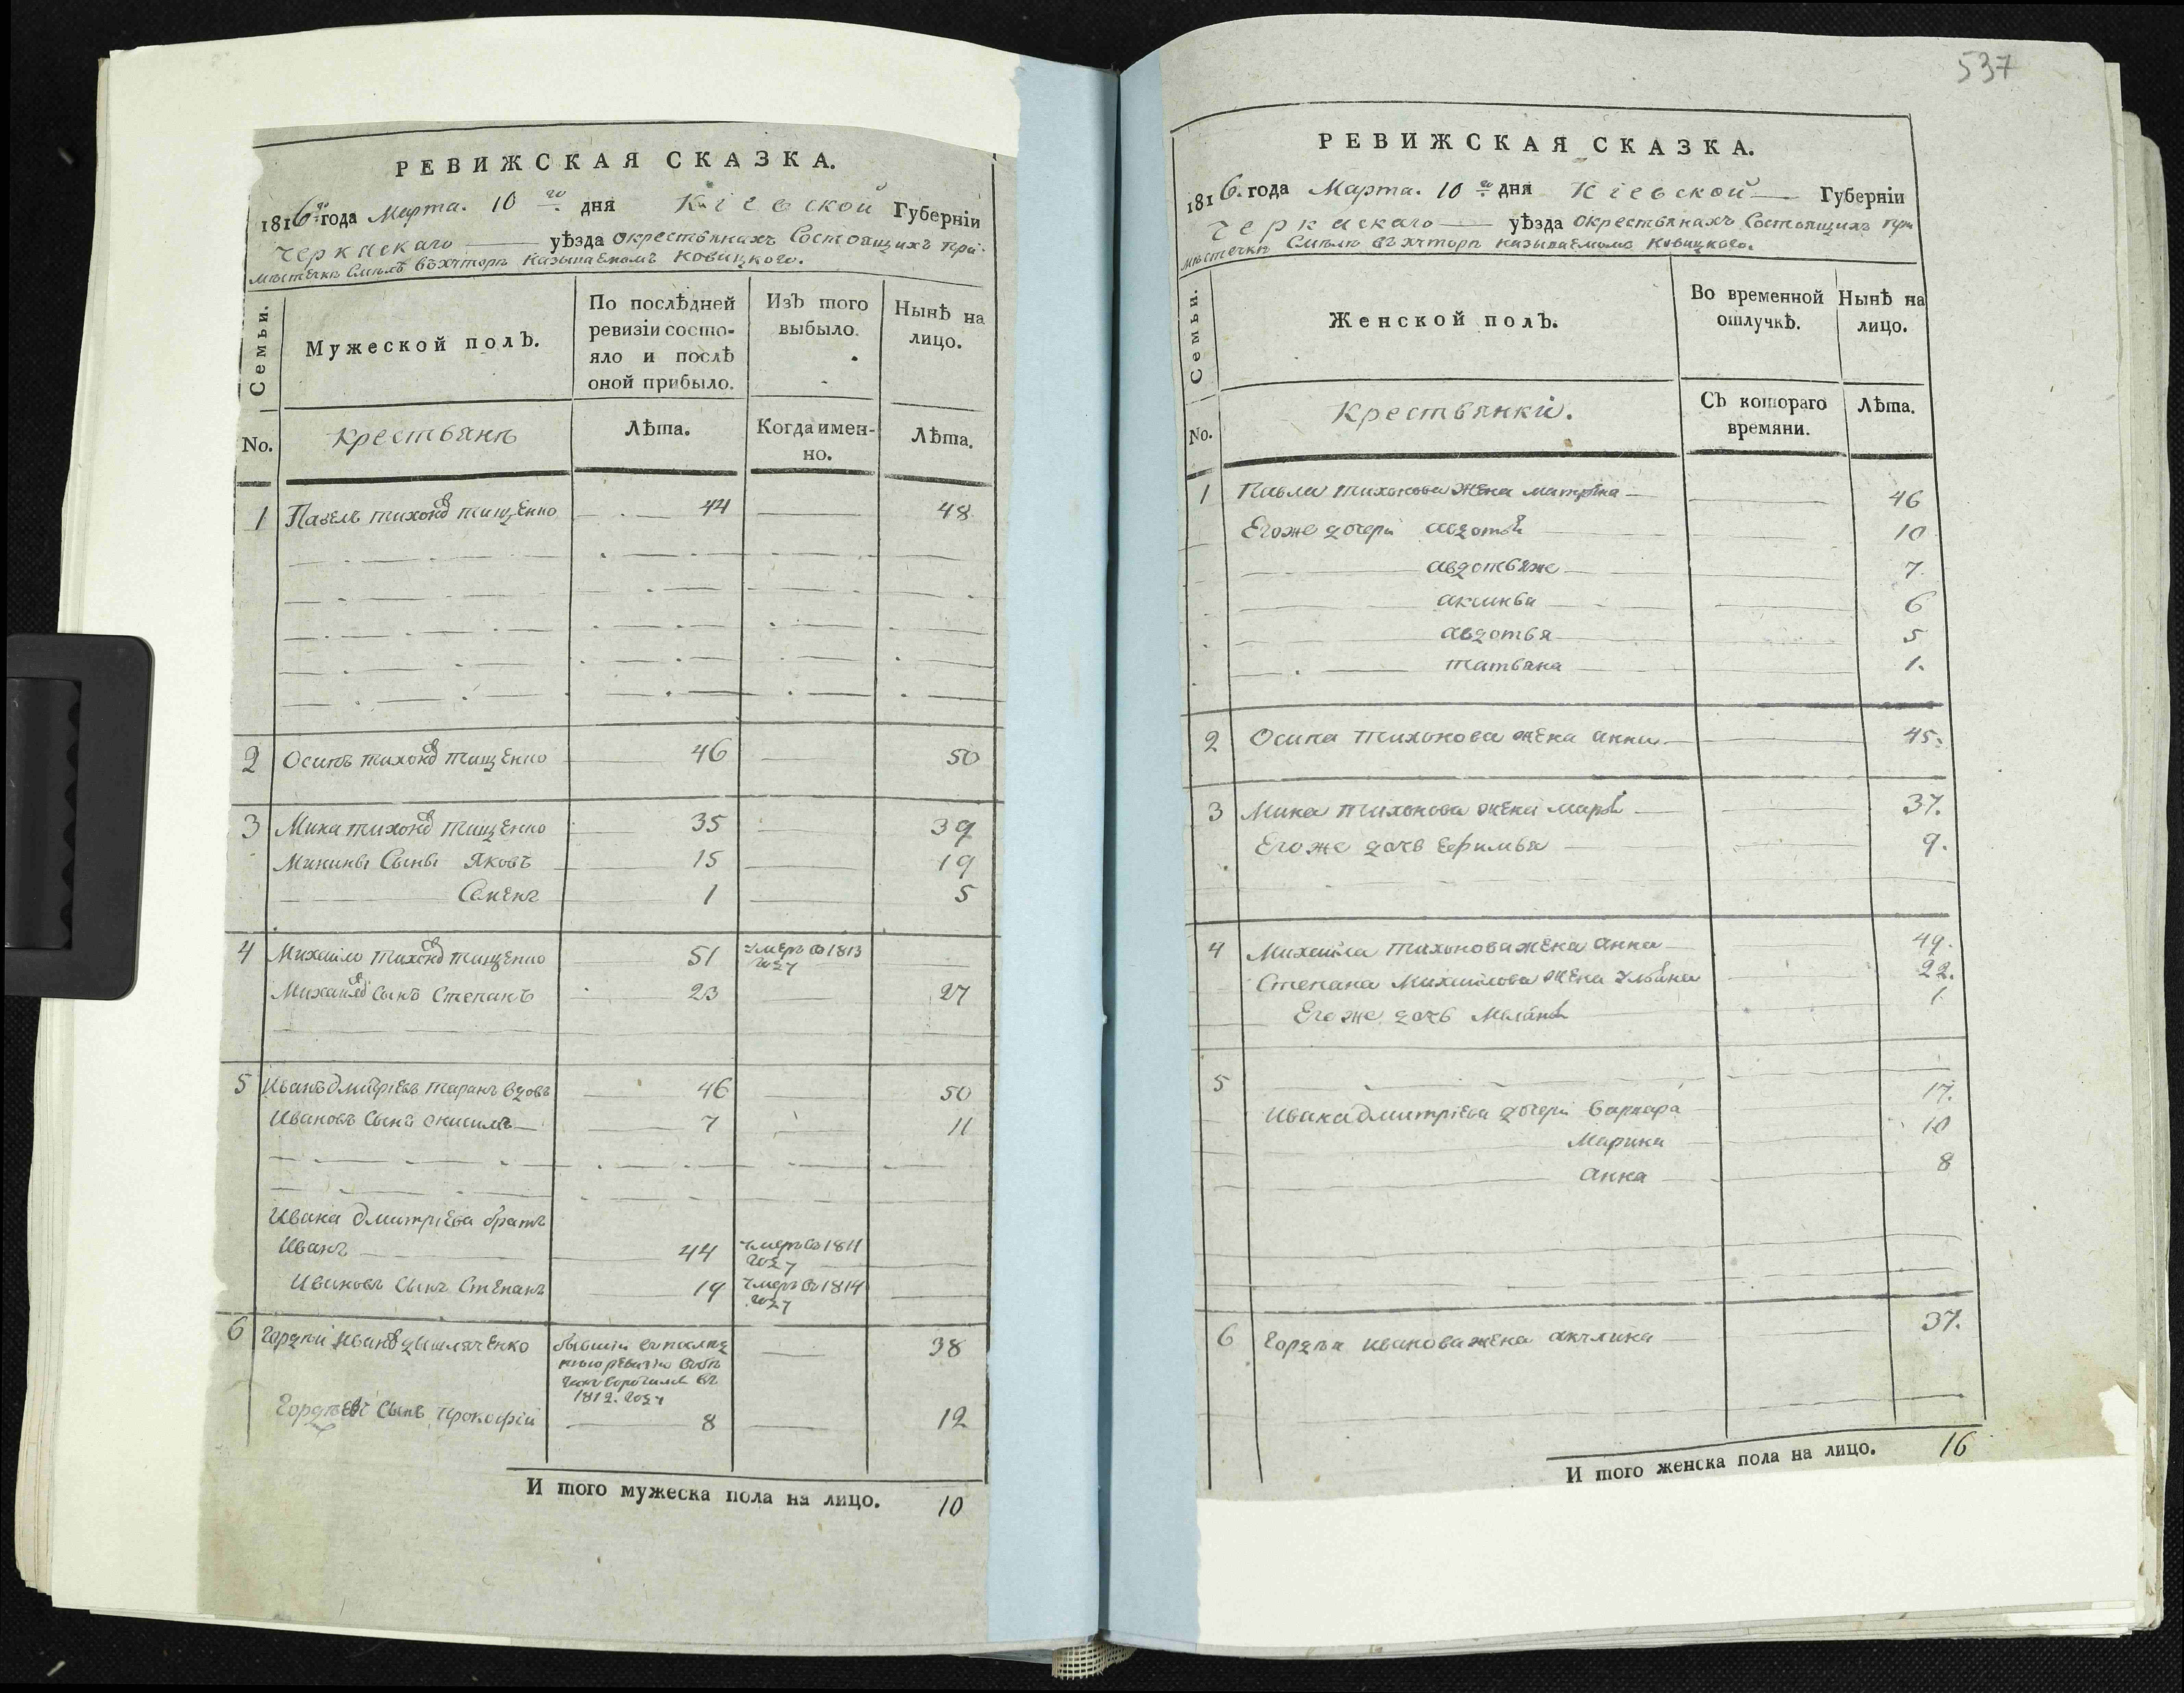 РЕВИЖСКАЯ СКАЗКА.
1816го года Марта. 10го дня Кіевской Губерніи
Черкаскаго уѣзда о крестьянахъ Состоящихъ при
мѣстечкѣ Смѣлѣ въ хуторѣ называемомъ Новицкого.
Семьи.
Мужеской полЪ.
По послѣдней
ревизіи состо-
яло и послѣ
оной прибыло.
ИзЪ того
выбыло.
НынѢ на
лицо.
No.
Крестьянѣ
Лѣта.
Когда имен-
но.
Лѣта.
1 Павелъ тихоновъ тищенко 44 48
2 Осипъ тихоновъ тищенко 46 50
3 Мина тихоновъ тищенко 35 39
Минины Сыны Яковъ 15 19
Семенъ 1 5
4 Михайло тихоновъ тищенко 51 умеръ въ 1813
году
Михайловъ сынъ Степанъ 23 27
5 Иванъ дмитріевъ таранъ вдовъ 46 50
Ивановъ Сынъ Онисимъ 7 11
Ивана дмитріева братъ
Иванъ 44 умеръ въ 1811
году
Ивановъ Сынъ Степанъ 19 умеръ въ 1814
году
6 Гордѣй Ивановъ 38
бывшій
ревизію
1812. году
Гордѣевъ Сынъ Прокофій 8 12
И того мужеска пола на лицо. 10
537
РЕВИЖСКАЯ СКАЗКА.
1816. года Марта. 10го дня Кіевской Губерніи
Черкаскаго уѣзда о крестьянахъ Состоящихъ при
мѣстечкѣ Смѣлѣ въ хуторѣ называемомъ Новицкого.
Семьи.
Женской полЪ.
Во временной
отлучкѣ.
НынѢ на
лицо.
No.
Крестьянки.
СЪ котораго
времяни.
Лѣта.
1 Павла тихонова жена матрена 46
Егоже дочери авдотья 10
авдотьяже 7.
аксинья 6
авдотья 5
татьяна 1.
2 Осипа тихонова жена анна 45.
3 Мина тихонова жена марья 37.
Его же дочь Ефимья 9.
4 Михайла тихонова жена анна 49.
Степана Михайлова жена ульяна 22.
Его же дочь Меланья 1
5
Ивана дмитріева дочери Варвара 17.
Марина 10
анна 8
6 Гордѣя иванова жена акулина 37.
И того женска пола на лицо. 16